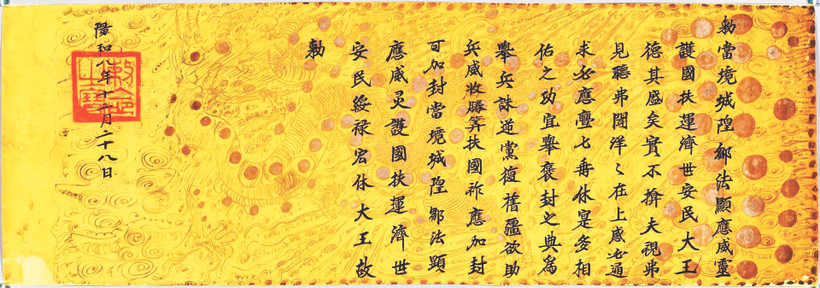 勅當境城隍鄒法顯應威靈
護國扶運濟世安民大王
德其盛矣實不揜夫視弗
見聽弗聞洋〻在上感必通
求必應亹〻毋休寔多相
佑之功宜舉褒封之典為
舉兵誅逆黨復舊疆欲助
兵威收勝筭扶國祚應加封
可加封當境城隍鄒法顯
應威灵護國扶運濟世
安民綏禄宏休大王故
勅
陽和八年十二月二十八日
勅命之寶